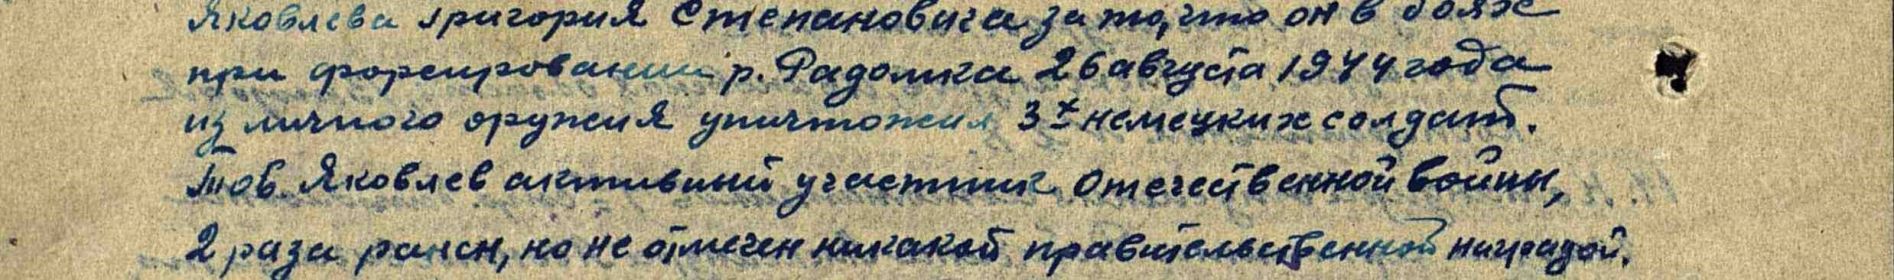 Яковлева Григория Степановича за то, что он в боях
при форсировании р. Радомка 26 августа 1944 года
из личного оружия уничтожил 3х немецких солдат.
Тов. Яковлев активный участник Отечественной войны,
2 раза ранен, но не отмечен никакой правительственной наградой.